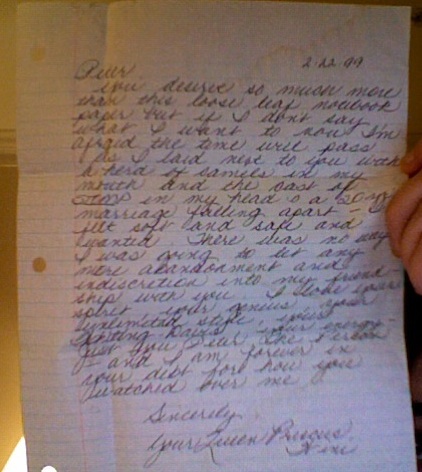 2-22-99
Dear
you deserve so much more
than this loose leaf notebook
paper but if I don't say
what I want to now I'm
afraid the time will pass
As I laid next to you with
a herd of camels in my
mouth and the cast of
in my head & a 20 yr
marriage falling apart - I
felt soft and safe and
wanted. There was no way
I was going to let any
mere abandonment and
indiscretion into my friend
ship with you. I love your
spirit, your genius, your
unlimited style, your
hands, your energy -
just you Dear the Person
- and I am forever in
your debt for how you
watched over me
Sincerely
Your Queen